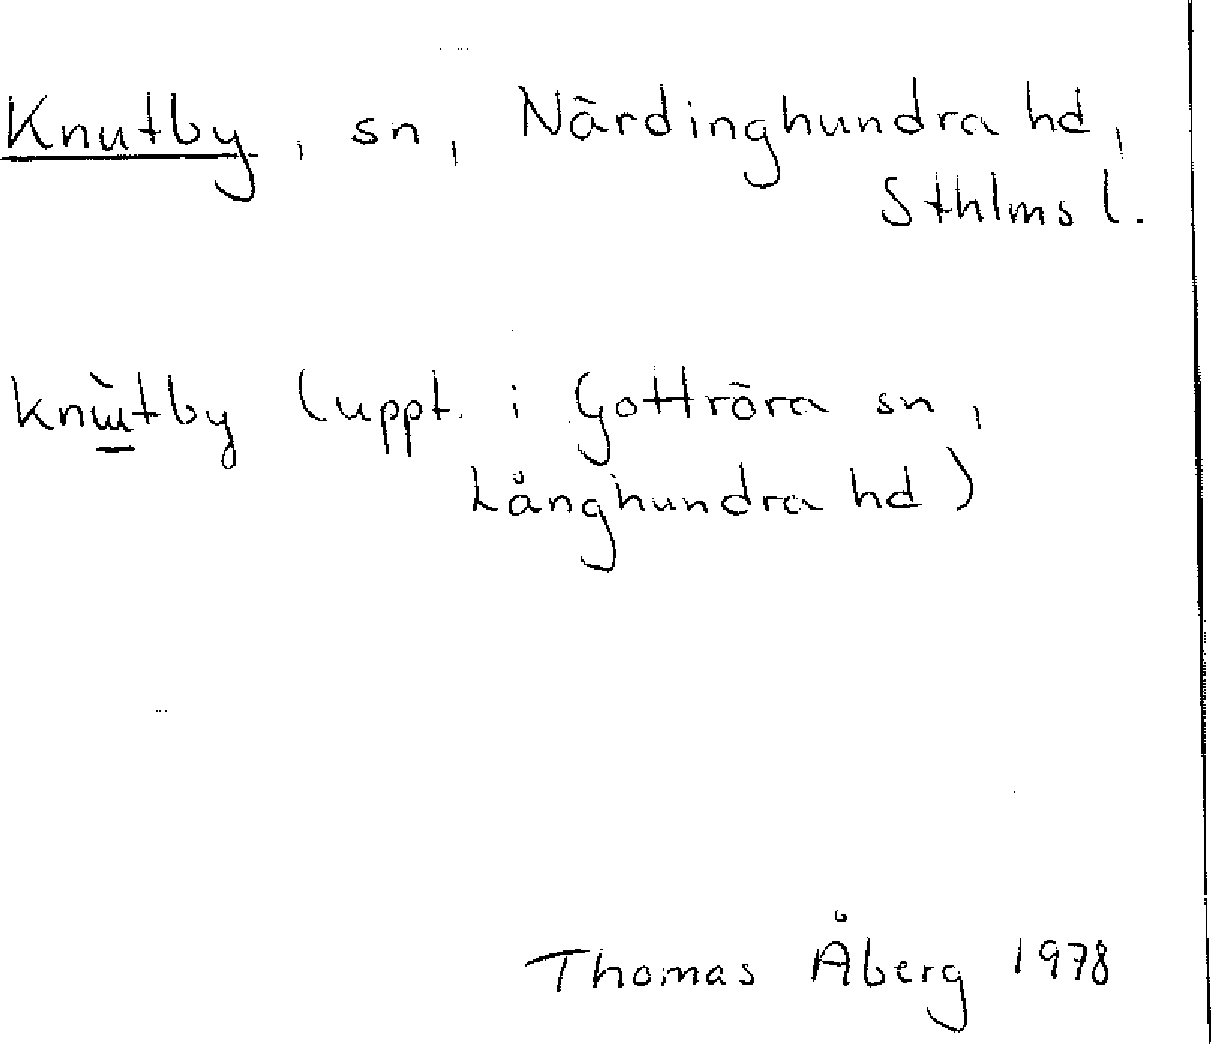 Knutby, sn, Närdinghundra hd,
Sthlms l.
knɯ̀tby (uppt. i Gottröra sn,
Långhundra hd)
Thomas Åberg 1978